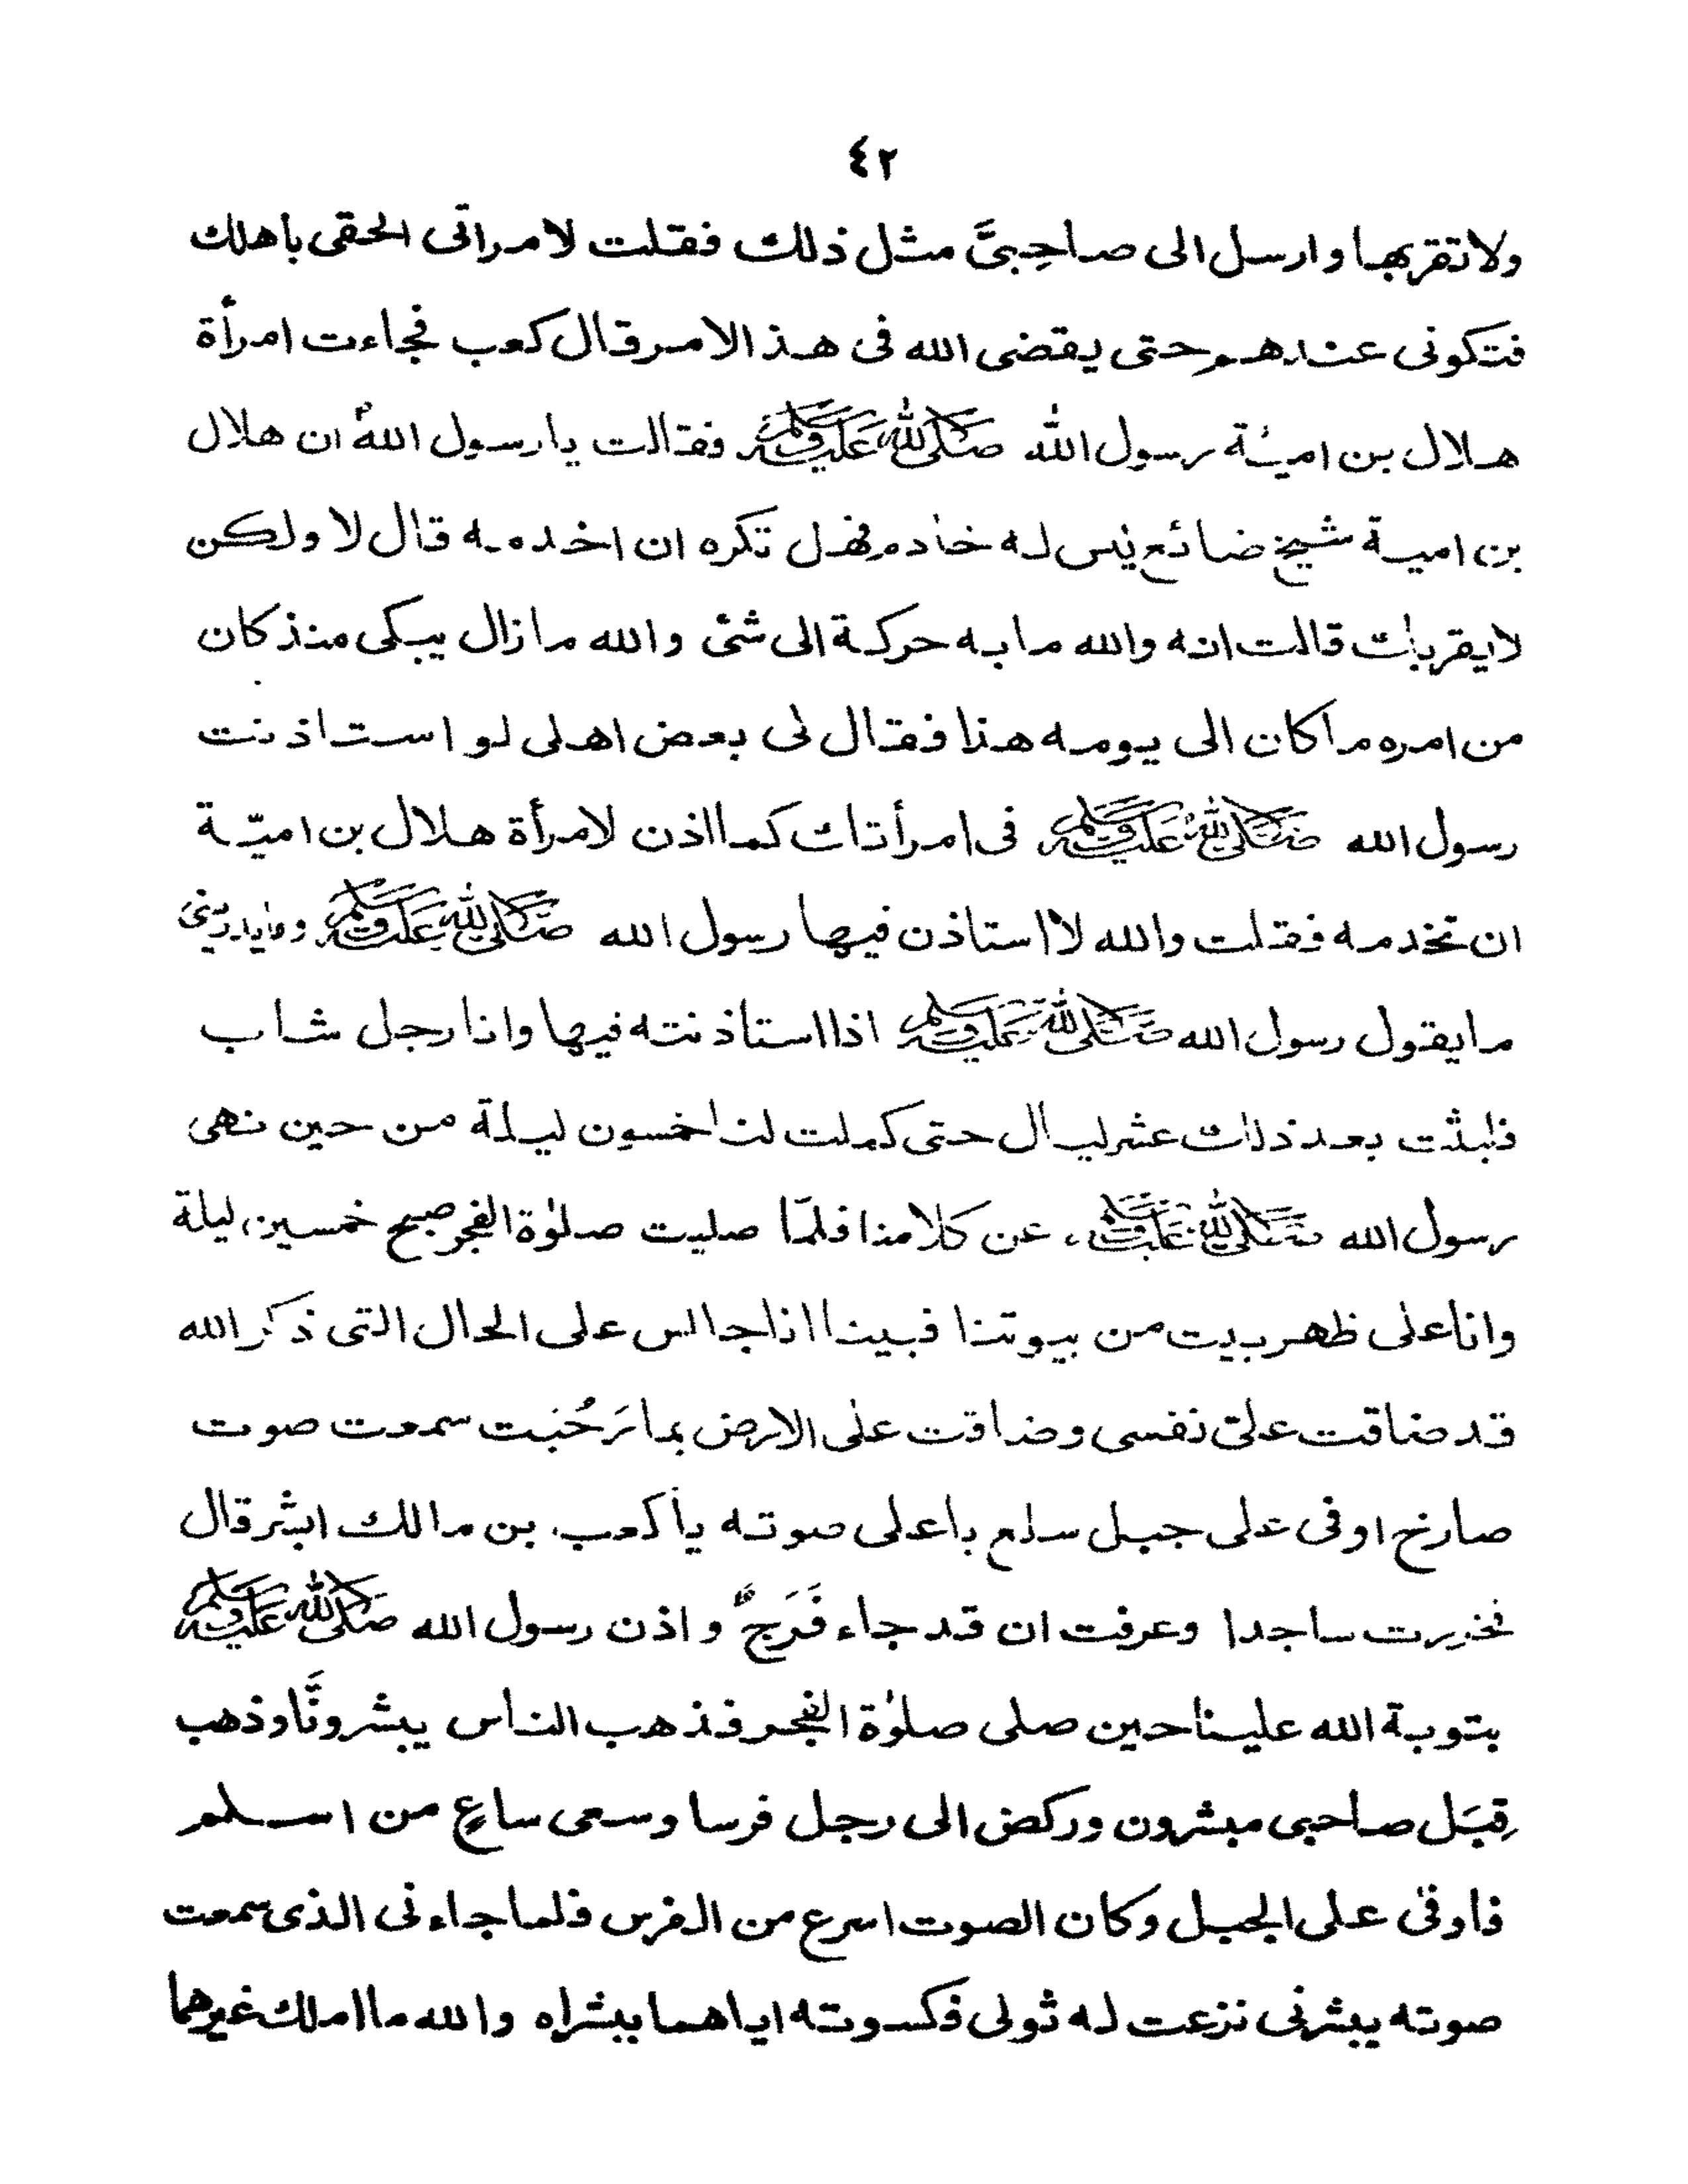 ٤٢
ولاتقربها وارسل الى صاحِبىَّ مثل ذلك فقلت لامراتى الحقى باهلك
فتكونى عندهم حتى يقضى الله فى هذا الامر قال كعب فجاءت امرأة
هلال بن اميّة رسول الله ﷺ فقالت يا رسول الله ان هلال
بن امية شيخ ضائع ليس له خادم فهل تكره ان اخدمه قال لا ولكن
لايقربك قالت انه والله ما به حركة الى شئ والله ما زال يبكى منذ كان
من امره ما كان الى يومه هذا فقال لى بعض اهلى لو استاذنت
رسول الله ﷺ فى امرأتك كما اذن لامرأة هلال بن اميّة
ان تخدمه فقلت والله لا استاذن فيها رسول الله ﷺ وما يدرينى
ما يقول رسول الله ﷺ اذا استاذنته فيها وانا رجل شاب
فلبثت بعد ذلك عشر ليال حتى كملت لنا خمسون ليلة من حين نهى
رسول الله ﷺ عن كلامنا فلمّا صليت صلوٰة الفجر صبح خمسين ليلة
وانا على ظهر بيت من بيوتنا فبينا انا جالس على الحال التى ذكر الله
قد ضاقت علىّ نفسى وضاقت على الارض بما رَحُبَت سمعت صوت
صارخ اوفى على جبل سلع باعلى صوته يا كعب بن مالك ابشر قال
فخررت ساجدا وعرفت ان قد جاء فَرَجٌ واذن رسول الله ﷺ
بتوبة الله علينا حين صلى صلوٰة الفجر فذهب الناس يبشرونَّا وذهب
قِبَل صاحبى مبشرون وركض الى رجل فرسا وسعى ساعٍ من اسلم
فاوفى على الجبل وكان الصوت اسرع من الفرس فلما جاءنى الذى سمعت
صوته يبشرنى نزعت له ثوبى فكسوته اياهما ببشراه والله ما املك غيرهما